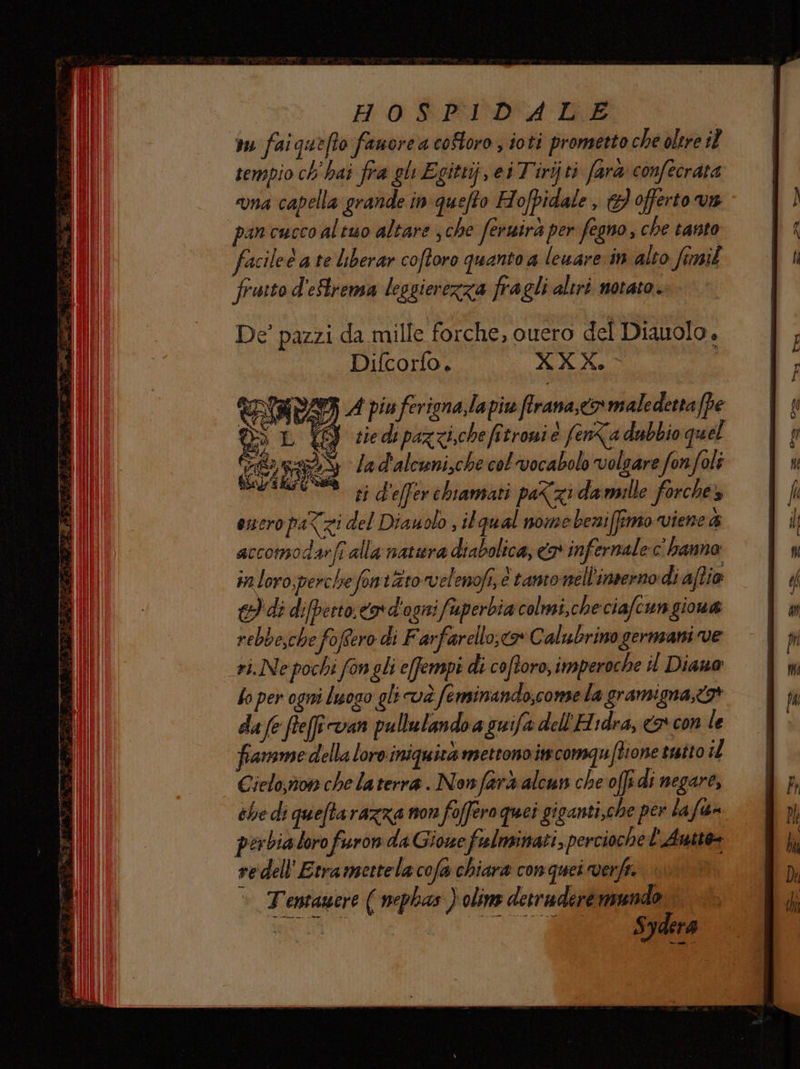 HOSPIDALE
tu fai queſto fauore a coſtoro, io ti prometto che oltre il
tempio ch'hai fra gli Egittij, e i Tirij ti ſarà conſecrata
vna capella grande in queſto Hoſpidale, & offerto vn
pan cucco al tuo altare, che ſeruirà per ſegno, che tanto
facile è a te liberar coſtoro quanto a leuare in alto ſimil
frutto d'eſtrema leggierezza fra gli altri notato.
De' pazzi da mille forche, ouero del Diauolo.
Diſcorſo. XXX.
LA più ferigna, la piu ſtrana, & maledetta ſpe
tie di pazzi, che ſi troui è ſenza dubbio quel
la d'alcuni, che col vocabolo volgare ſon ſoli
ti d'eſſer chiamati pazzi da mille forche,
ouero pazzi del Diauolo, il qual nome beniſſimo viene à
accomodarſi alla natura diabolica, & infernale c'hanno
in loro, perche ſon tãto velenoſi, è tanto nell'interno di aſtio
& di diſpetto, & d'ogni ſuperbia colmi, che ciaſcun gioua
rebbe, che foſſero di Farfarello, & Calabrino germani ve
ri. Ne pochi ſon gli eſſempi di coſtoro, imperoche il Diauo
lo per ogni luogo gli và ſeminando, come la gramigna, &
da ſe ſteſſi van pullulando a guiſa dell'Hidra, & con le
fiamme della loro iniquità mettono in comquſtione tutto il
Cielo, non che la terra. Non ſarà alcun che oſſi di negare,
che di queſta razza non foſſero quei giganti, che per la ſu-
perbia loro furon da Gioue fulminati, percioche l'Autto-
re dell' Etra mette la coſa chiara con quei verſi.
Tentauere (nephas) olim detrudere mundo
Sydera